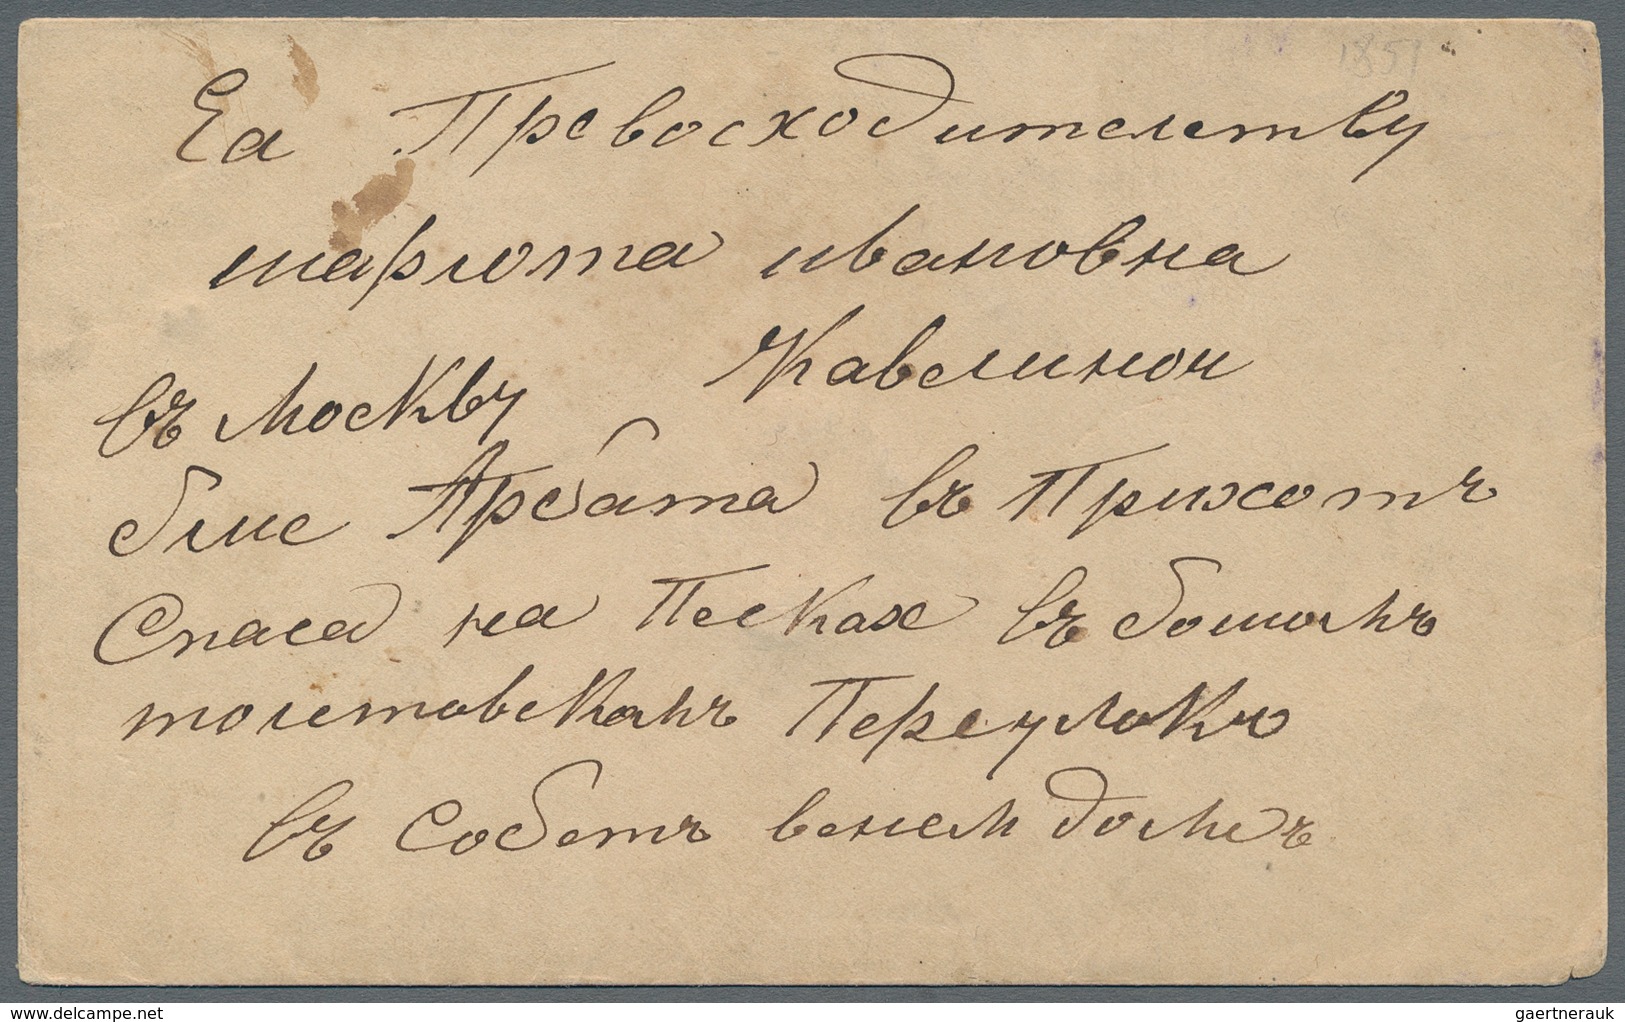 1851
Еа Превосходителству
шарлота ивановна
Кавелиной
въ Москву
блис Арбата въ Прихотъ
Спаса на Песках въ бошомъ
толстовскомъ Переулокъ
въ Собстъ венем домеъ
delcampe.net
gaertnerauk